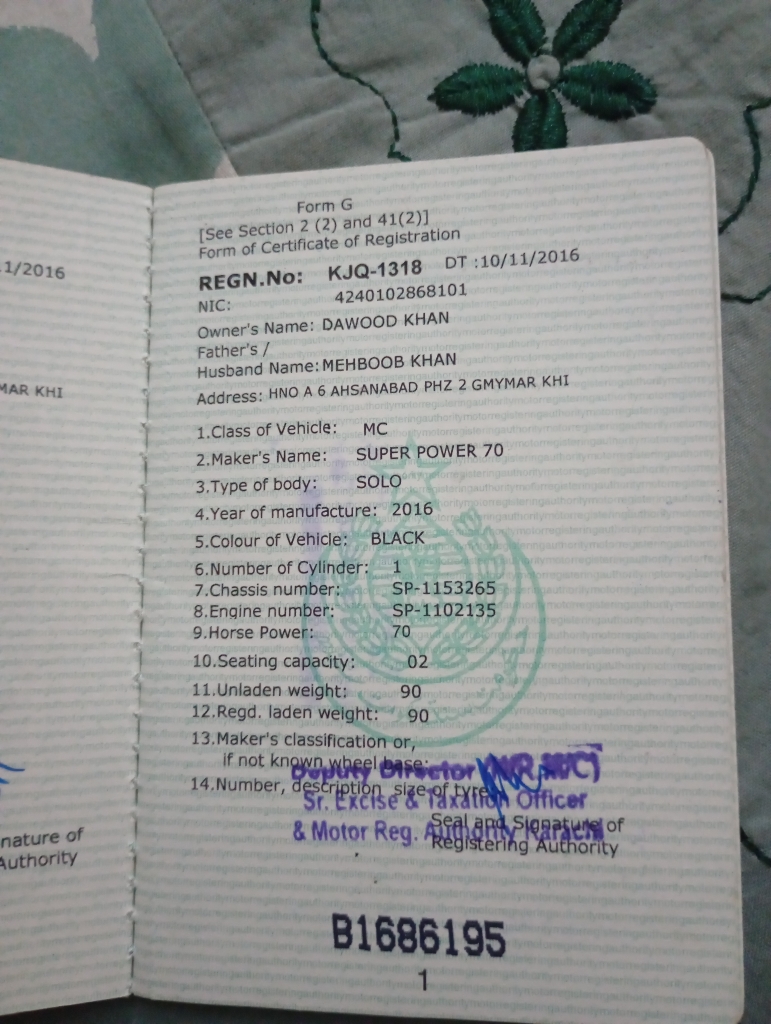 .1/2016
MAR KHI
nature of
Authority
Form G
[See Section 2 (2) and 41(2)]
Form of Certificate of Registration
REGN.No: KJQ-1318 DT :10/11/2016
NIC: 4240102868101
Owner's Name: DAWOOD KHAN
Father's /
Husband Name: MEHBOOB KHAN
Address: HNO A 6 AHSANABAD PHZ 2 GMYMAR KHI
1.Class of Vehicle: MC
2.Maker's Name: SUPER POWER 70
3.Type of body: SOLO
4.Year of manufacture: 2016
5.Colour of Vehicle: BLACK
6.Number of Cylinder: 1
7.Chassis number: SP-1153265
8.Engine number: SP-1102135
9.Horse Power: 70
10.Seating capacity: 02
11.Unladen weight: 90
12.Regd. laden weight: 90
13.Maker's classification or,
if not known wheel base:
14.Number, description size of tyre
Deputy Director
Sr. Excise & Taxation Officer
& Motor Reg. Authority Karachi
Seal and Signature of
Registering Authority
B1686195
1